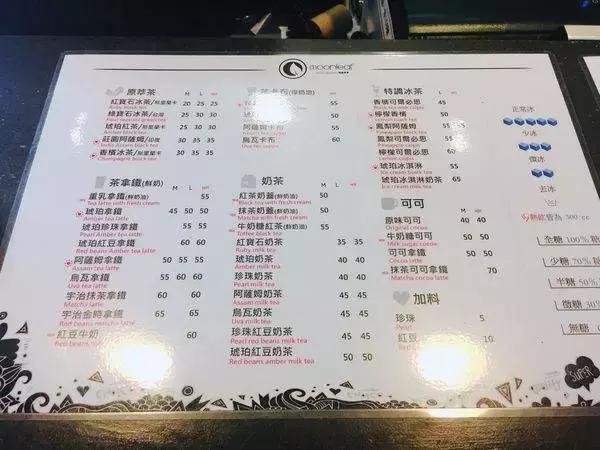 moonleaf
原萃茶 M L HOT
紅寶石冰茶/斯里蘭卡 20 25 25
Ruby black tea
綠寶石冰茶/台灣 25 35 35
Four seasons green tea
琥珀紅茶/斯里蘭卡 25 30 30
Amber black tea
莊園阿薩姆/印度 30 35 35
India Assam black tea
香檳冰茶/斯里蘭卡 30 35 35
Champagne black tea
茶拿鐵(鮮奶) M L HOT
重乳拿鐵(鮮奶油) 55
Tea latte with fresh cream
琥珀拿鐵 45 50 50
Amber tea latte
琥珀珍珠拿鐵 55 55
Pearl Amber tea latte
琥珀紅豆拿鐵 60 60
Red beans Amber tea latte
阿薩姆拿鐵 55 60 60
Assam tea latte
烏瓦拿鐵 55 60 60
Uva tea latte
宇治抹茶拿鐵 60 60
Matcha latte
宇治金時拿鐵 65 65
Red beans matcha latte
紅豆牛奶 60
Red beans
卡布(厚奶泡) M L
55
琥珀卡布 50
阿薩姆卡布 55
烏瓦卡布 55
Uva tea cabu
奶茶 M L HOT
紅茶奶蓋(鮮奶油) 55
Black tea with fresh cream
抹茶奶蓋(鮮奶油) 55
Matcha with fresh cream
牛奶糖紅茶(鮮奶油) 55
Toffee black tea
紅寶石奶茶 35 35
Ruby milk tea
琥珀奶茶 40 40
Amber milk tea
珍珠奶茶 40 40
Pearl milk tea
阿薩姆奶茶 45 45
Assam milk tea
烏瓦奶茶 45 45
Uva milk tea
珍珠紅豆奶茶 50 50
Pearl red beans milk tea
琥珀紅豆奶茶 50 50
Red beans amber milk tea
特調冰茶 M L
香檳可爾必思 45
檸檬香檳 50
鳳梨阿薩姆 50
Pineapple black tea
鳳梨可爾必思 50
檸檬可爾必思 50
Lemon calpis
琥珀冰淇淋 55
Ice cream black tea
琥珀冰淇淋奶茶 65
Ice cream milk tea
可可 L HOT
原味可可 40 40
Original cocoa
牛奶糖可可 50 50
Milk sugar cocoa
可可拿鐵 50 50
Cocoa latte
抹茶可可拿鐵 70
Matcha cocoa latte
加料
珍珠 5
Pearl
紅豆 10
正常冰
少冰
微冰
去冰
熱飲皆為 300 cc
全糖 100%
少糖 70%
半糖 50%
微糖 30%
無糖
SUPER